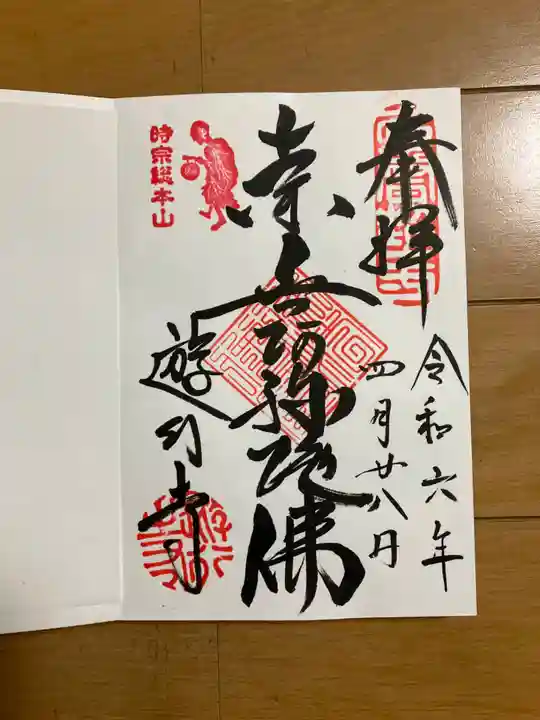 奉拝
令和六年
四月廿八日
南無阿弥陀佛
時宗総本山
遊行寺